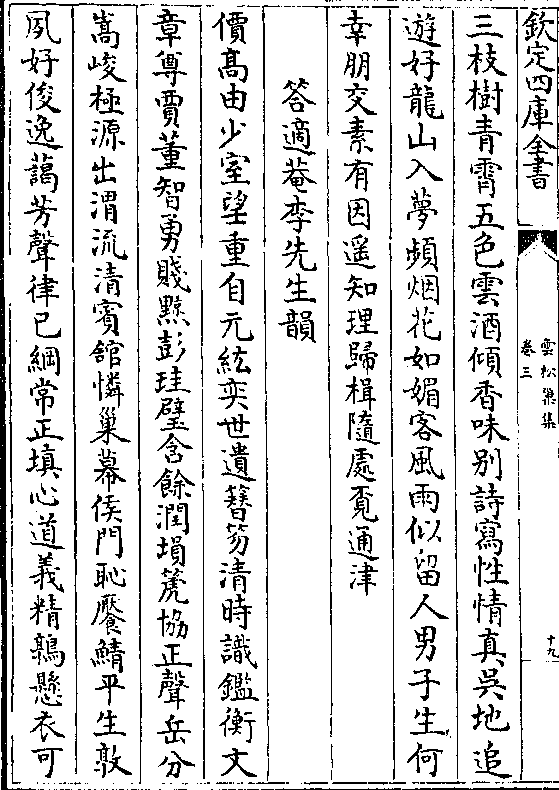 欽定四庫全書
雲松巢集
卷三
十九
三枝樹青霄五色雲酒傾香味别詩寫性情真吳地追
遊好龍山入夢頻烟花如媚客風雨似留人男子生何
幸朋交素有因遥知理歸楫隨處覔通津
答適菴李先生韻
價髙由少室望重自元紘奕世遺簪笏清時識鑑衡文
章尊賈董智勇賤黥彭珪璧含餘潤塤篪協正聲岳分
嵩峻極源出渭流清賓舘憐巢幕侯門恥饜鯖平生敦
夙好俊逸藹芳聲律已綱常正填心道義精鶉懸衣可